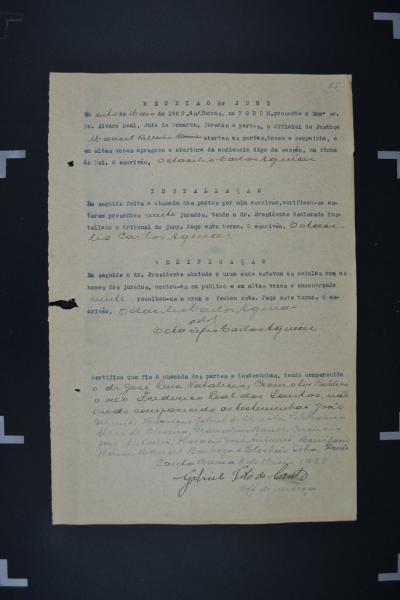 25
REUNIÃO do JURY
Em oito de Maio de 1928, ás horas, no FORUM, presente o Exmº sr.
Dr. Alvaro Leal, Juiz de Comarca, jurados e partes, o Official de Justiça
Manoel Ribeiro abertas as portas, tocou a campainha, e
em altas vozes apregoou a abertura da audiencia digo da sessão, na fórma
da lei. O escrivão, Octacilio Carlos Aguiar
INSTALLAÇÃO
Em seguida feita a chamada das partes por mim escrivão, verificou-se es-
tarem presentes vinte jurados, tendo o dr. Presidente declarado ins-
tallado o tribunal do jury. Faço este termo. O escrivão, Octaci-
lio Carlos Aguiar
VERIFICAÇÃO
Em seguida o dr. Presidente abrindo a urna onde estavam as cedulas com os
nomes dos jurados, contou-as em publico e em altas vozes e encontrando
vinte recolheu-as a urna e fechou esta. Faço este termo. O es-
crivão, Octacilio Carlos Aguiar
Octacilio Carlos Aguiar
Certifico que fiz a chamada das partes e testemunhas, tendo comparecido
o dr José Luiz Natalicio, Promotor Publico
o réo Frederico Leal dos Santos, não
tendo comparecido as testemunhas João
Schmidt, Henrique Gabriel de
de Oliveira, Francisco Ramos,
José Antunes, Horacio José Antunes,
Manoel Barboza e
Santa Maria 8 de Maio 1928
Gabriel
off. de justiça